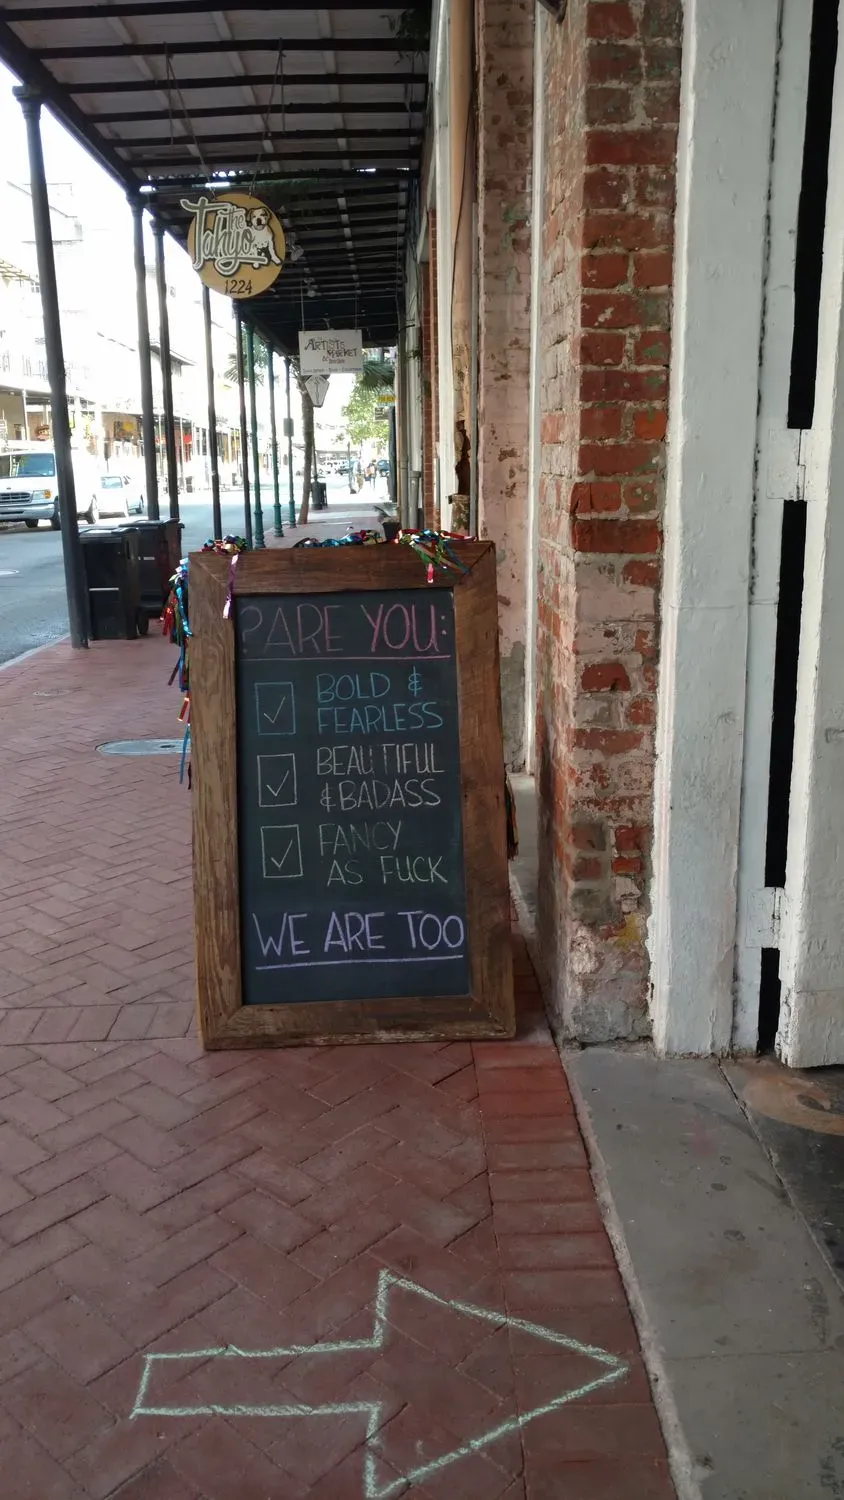 The
Takyo
1224
ARTISTS
MARKET
?ARE YOU:
BOLD &
FEARLESS
BEAUTIFUL
& BADASS
FANCY
AS FUCK
WE ARE TOO